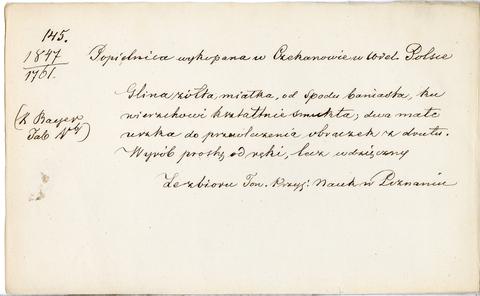 145.
1847
1761.
Popielnica wykopana w Czekanowie w Wiel. Polsce
(K Bayer
Tab No
Glina żółta, miałka, od spodu baniasta, ku
wierzchowi kształtnie smukła; dwa małe
uszka do przewleczenia obraczek z drutu.
Wyrób prosty od ręki, lecz wdzięczny
Ze zbioru Tow. Przyj: Nauk w Poznaniu